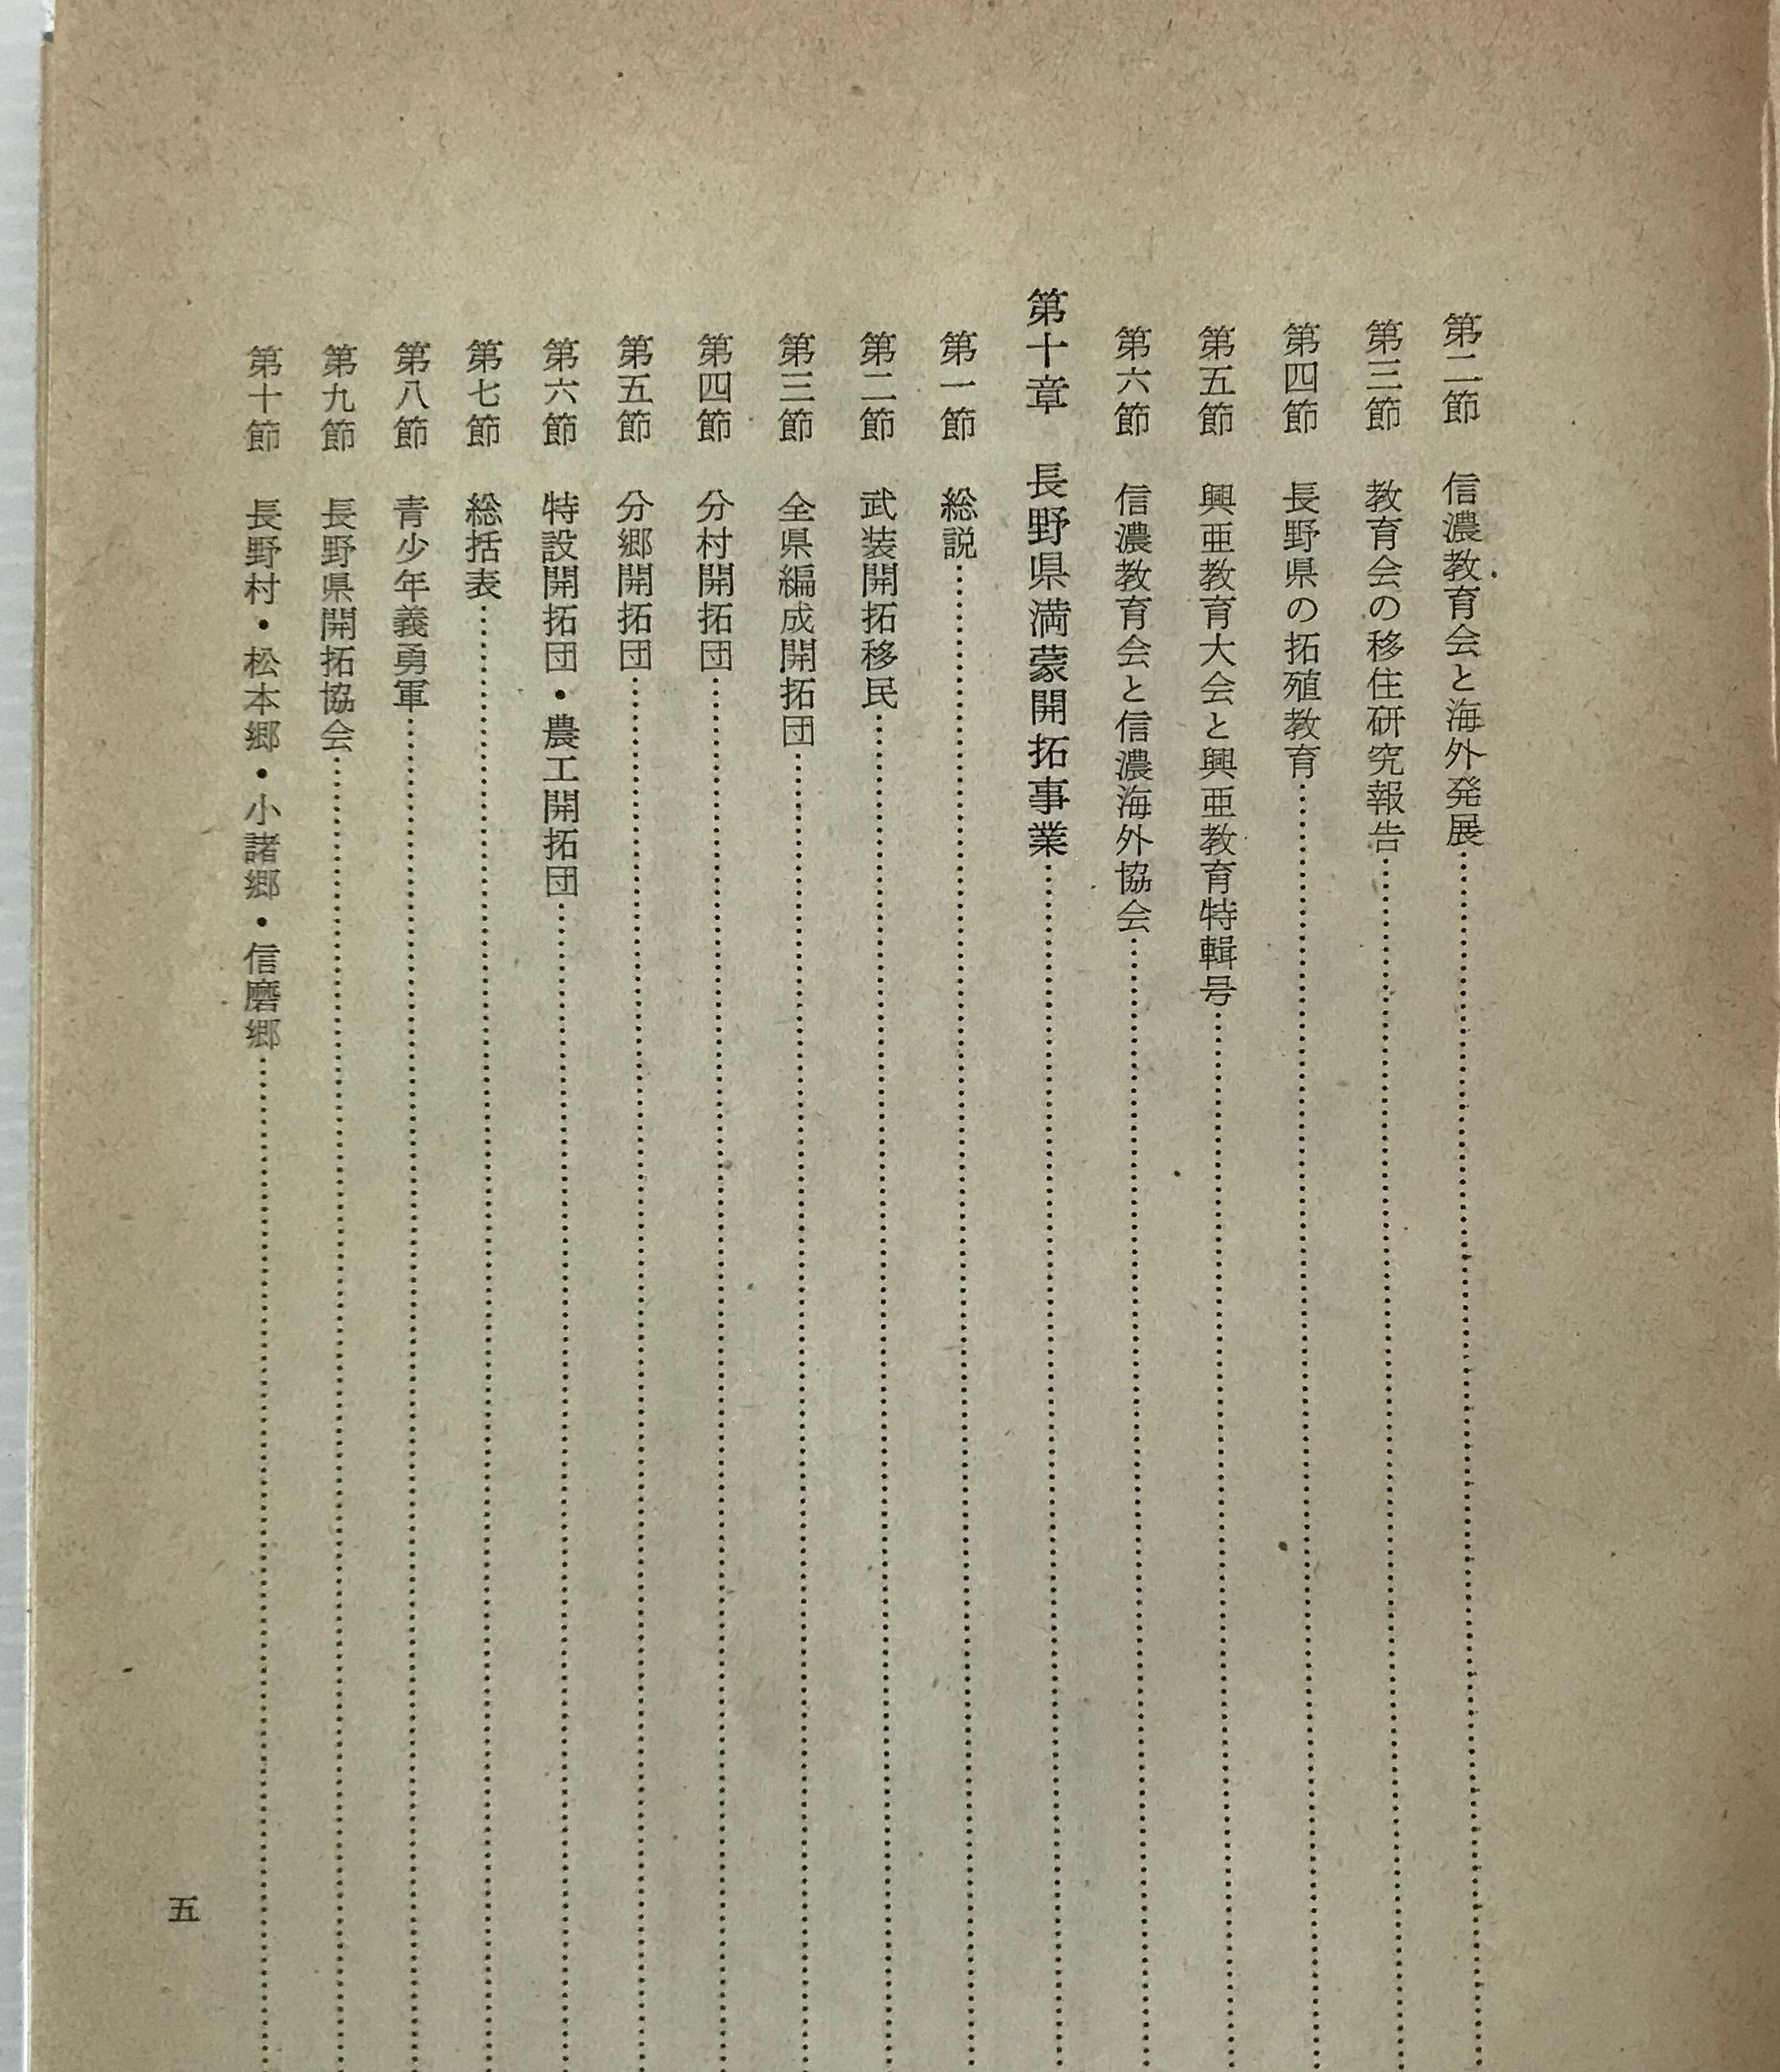 第二節　信濃教育会と海外発展
第三節　教育会の移住研究報告
第四節　長野県の拓殖教育
第五節　興亜教育大会と興亜教育特輯号
第六節　信濃教育会と信濃海外協会
第十章　長野県満蒙開拓事業
第一節　総説
第二節　武装開拓移民
第三節　全県編成開拓団
第四節　分村開拓団
第五節　分郷開拓団
第六節　特設開拓団・農工開拓団
第七節　総括表
第八節　青少年義勇軍
第九節　長野県開拓協会
第十節　長野村・松本郷・小諸郷・信磨郷
五